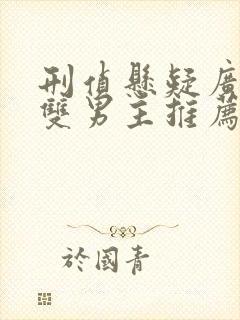 刑偵懸疑廣
雙男主推薦
於國青